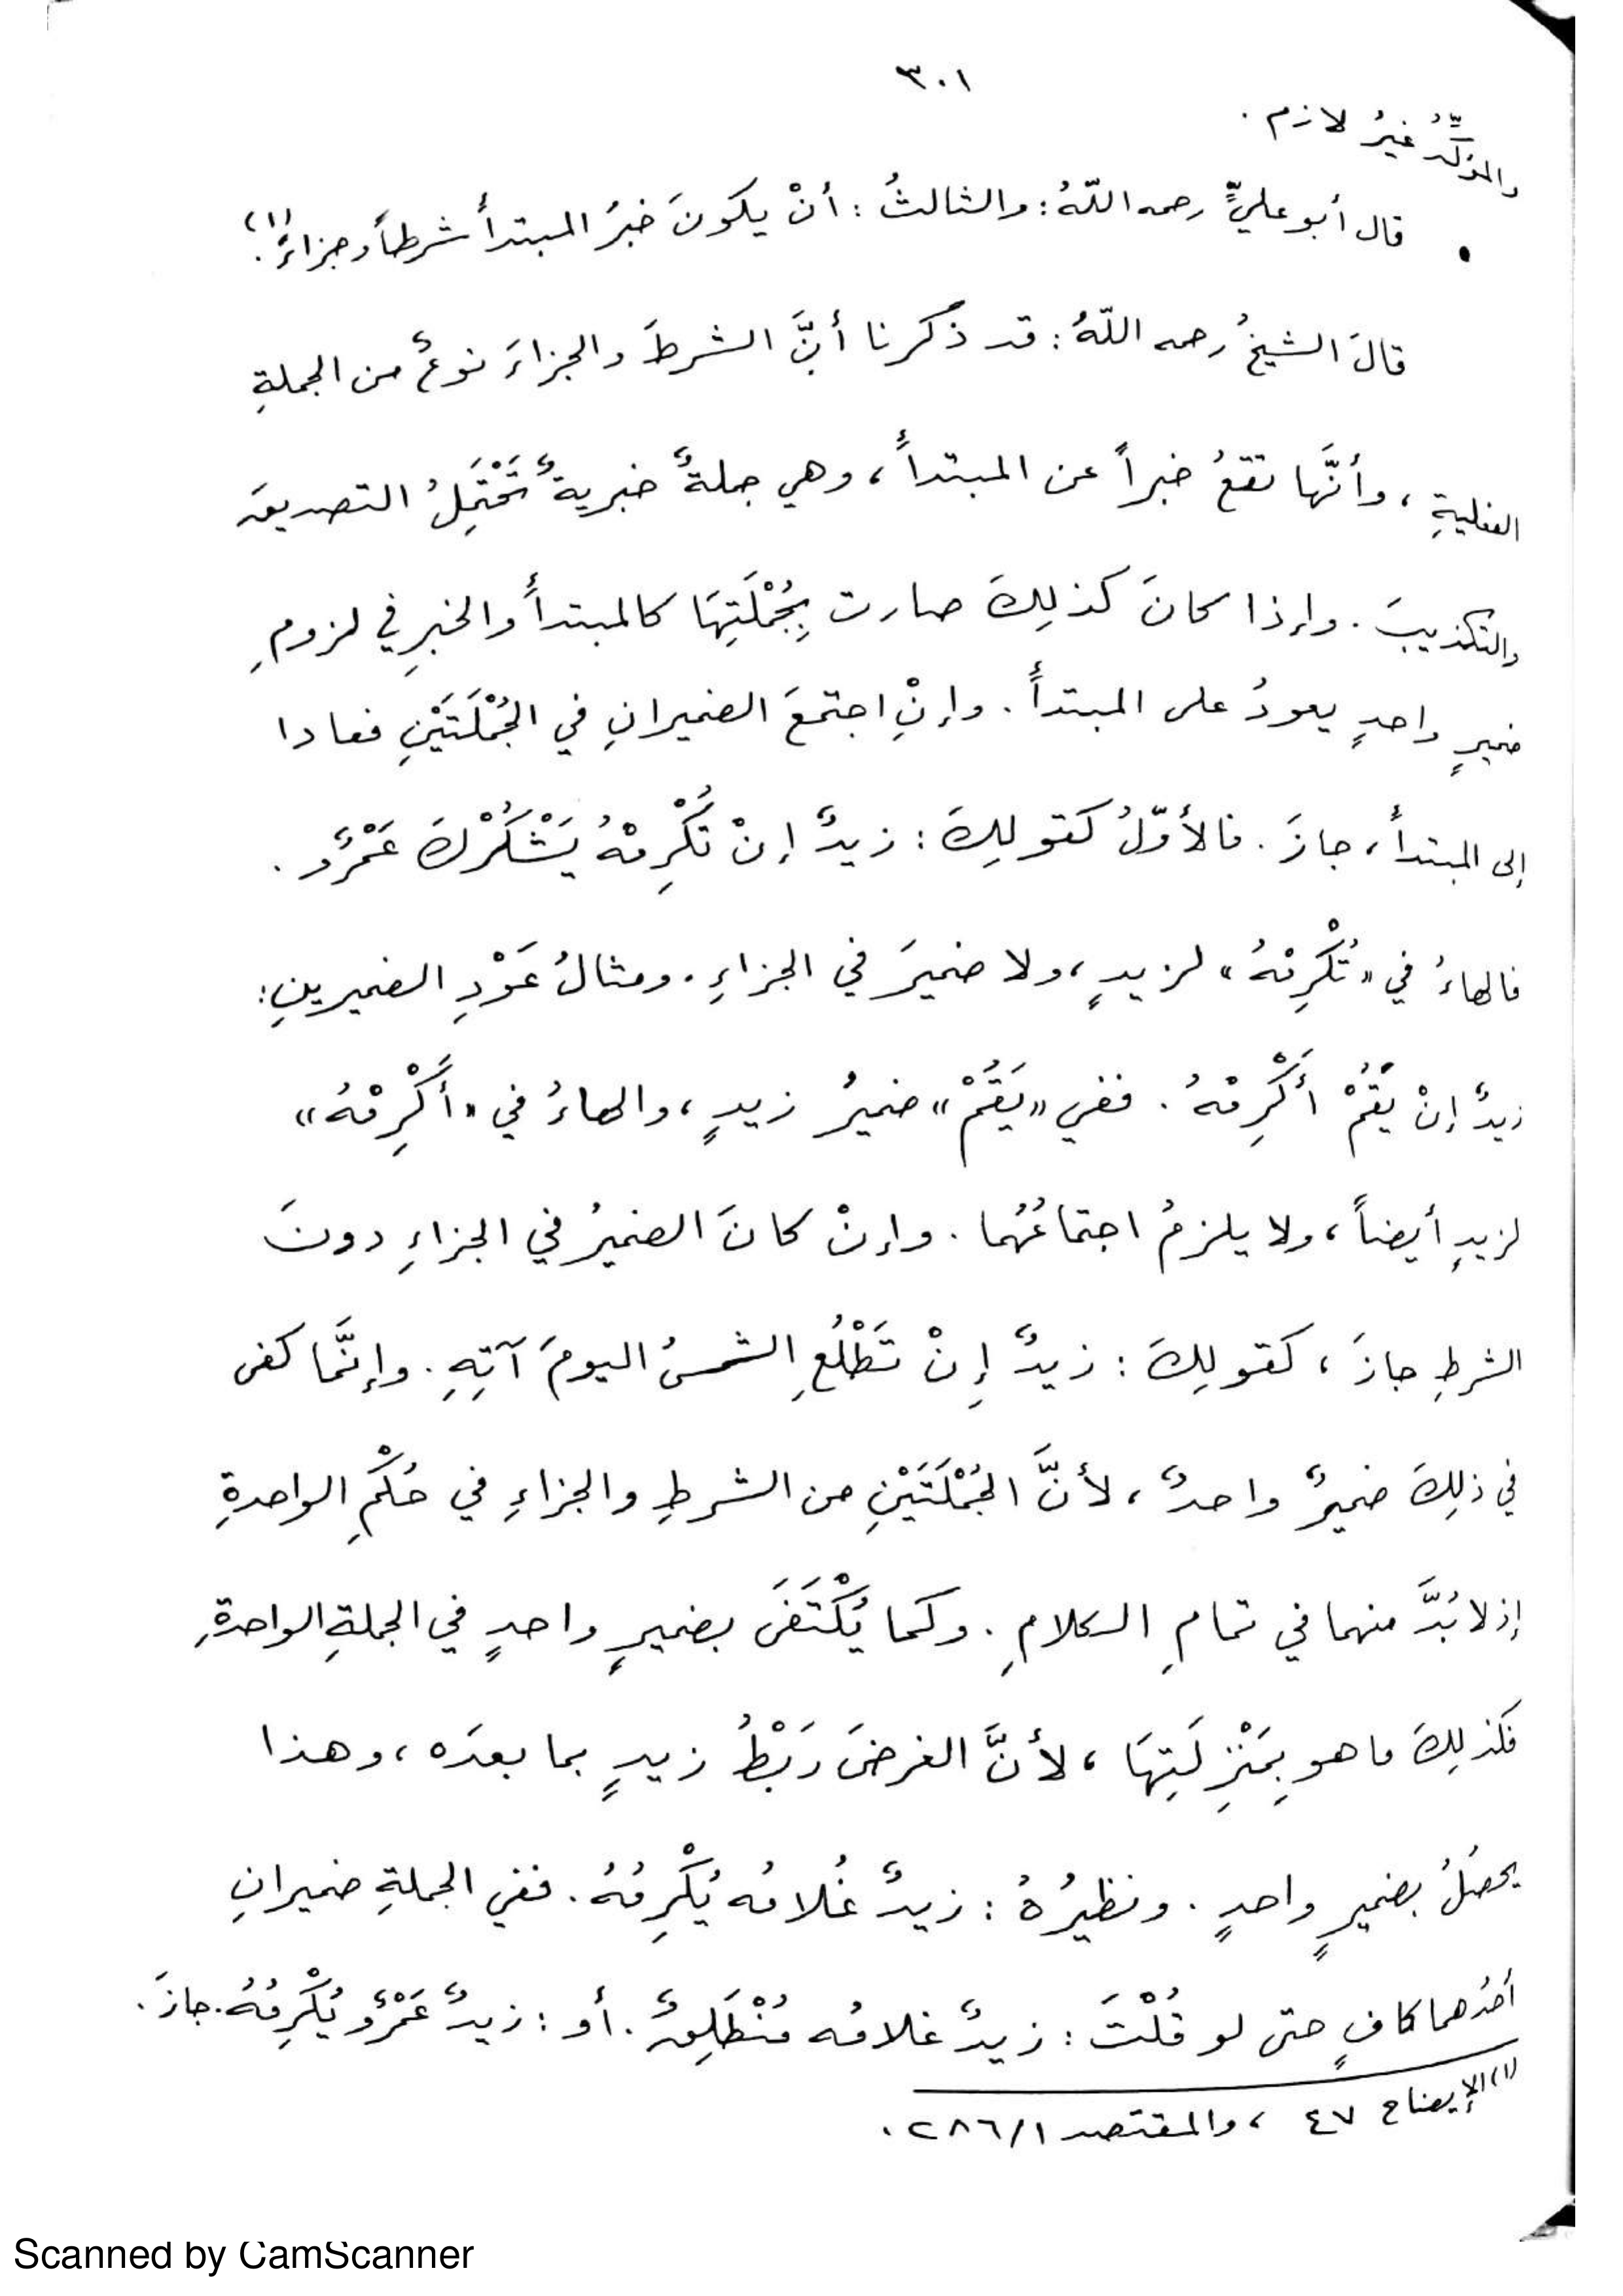 ٣٠١
والمؤكِّدُ غيرُ لازم .
• قال أبو عليٍّ رحمه اللّهُ : والثالثُ : أنْ يكونَ خبرُ المبتدأِ شرطاً وجزاءً(١).
قالَ الشيخُ رحمه اللّهُ : قد ذكرنا أنَّ الشرطَ والجزاءَ نوعٌ من الجملةِ
الفعليةِ ، وأنَّها تقعُ خبراً عن المبتدأ ، وهي جملةٌ خبريةٌ تَحْتَمِلُ التصديقَ
والتكذيبَ . وإذا كانَ كذلِكَ صارت بِجُمْلَتِهَا كالمبتدأ والخبرِ في لزومِ
ضميرٍ واحدٍ يعودُ على المبتدأ . وإنْ اجتمعَ الضميرانِ في الجُمْلَتَيْنِ فعادا
إلى المبتدأ ، جازَ . فالأوّلُ كقولِكَ : زيدٌ إنْ تُكْرِمْهُ يَشْكُرْكَ عَمْرٌو .
فالهاءُ في «تُكْرِمْهُ» لزيدٍ ، ولا ضميرَ في الجزاءِ . ومثالُ عَوْدِ الضميرينِ :
زيدٌ إنْ يَقُمْ أُكْرِمْهُ . ففي «يَقُمْ» ضميرُ زيدٍ ، والهاءُ في «أُكْرِمْهُ»
لزيدٍ أيضاً ، ولا يلزمُ اجتماعُهُما . وإنْ كانَ الضميرُ في الجزاءِ دونَ
الشرطِ جازَ ، كقولِكَ : زيدٌ إِنْ تَطْلُعِ الشمسُ اليومَ آتِهِ . وإنَّما كفى
في ذلِكَ ضميرٌ واحدٌ ، لأنَّ الجُمْلَتَيْنِ من الشرطِ والجزاءِ في حُكْمِ الواحدةِ
إذ لا بُدَّ منهما في تمامِ الكلامِ . وكما يُكْتَفَى بضميرٍ واحدٍ في الجملةِ الواحدةِ
فكذلِكَ ما هو بِمَنْزِلَتِهَا ، لأنَّ الغرضَ رَبْطُ زيدٍ بما بعدَه ، وهذا
يحصُلُ بضميرٍ واحدٍ . ونظيرُهُ : زيدٌ غُلامُه يُكْرِمُهُ . ففي الجملةِ ضميرانِ
أحدُهما كافٍ حتى لو قُلْتَ : زيدٌ غلامُه مُنْطَلِقٌ . أو : زيدٌ عَمْرٌو يُكْرِمُهُ . جازَ .
(١) الإيضاح ٤٧ ، والمقتصد ٢٨٦/١ .
Scanned by CamScanner